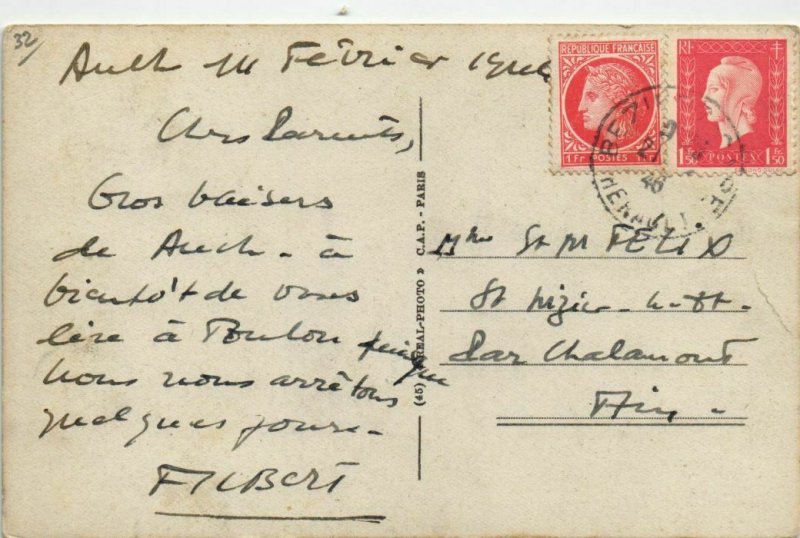 32/
Auch 14 Février
Chers Parents,
Gros baisers
de Auch - à
bientôt de vous
lire à Toulon puisque
nous nous arrêtons
quelques jours -
FILBERT
(45) "REAL-PHOTO" C.A.P. - PARIS
REPUBLIQUE FRANÇAISE
1 Fr POSTES
RF
1 Fr. 50 POSTES 1 Fr. 50
BEZIERS
46
HERAULT
St M FELIX
St Nizier - le - dt -
Par Chalamont
Ain -